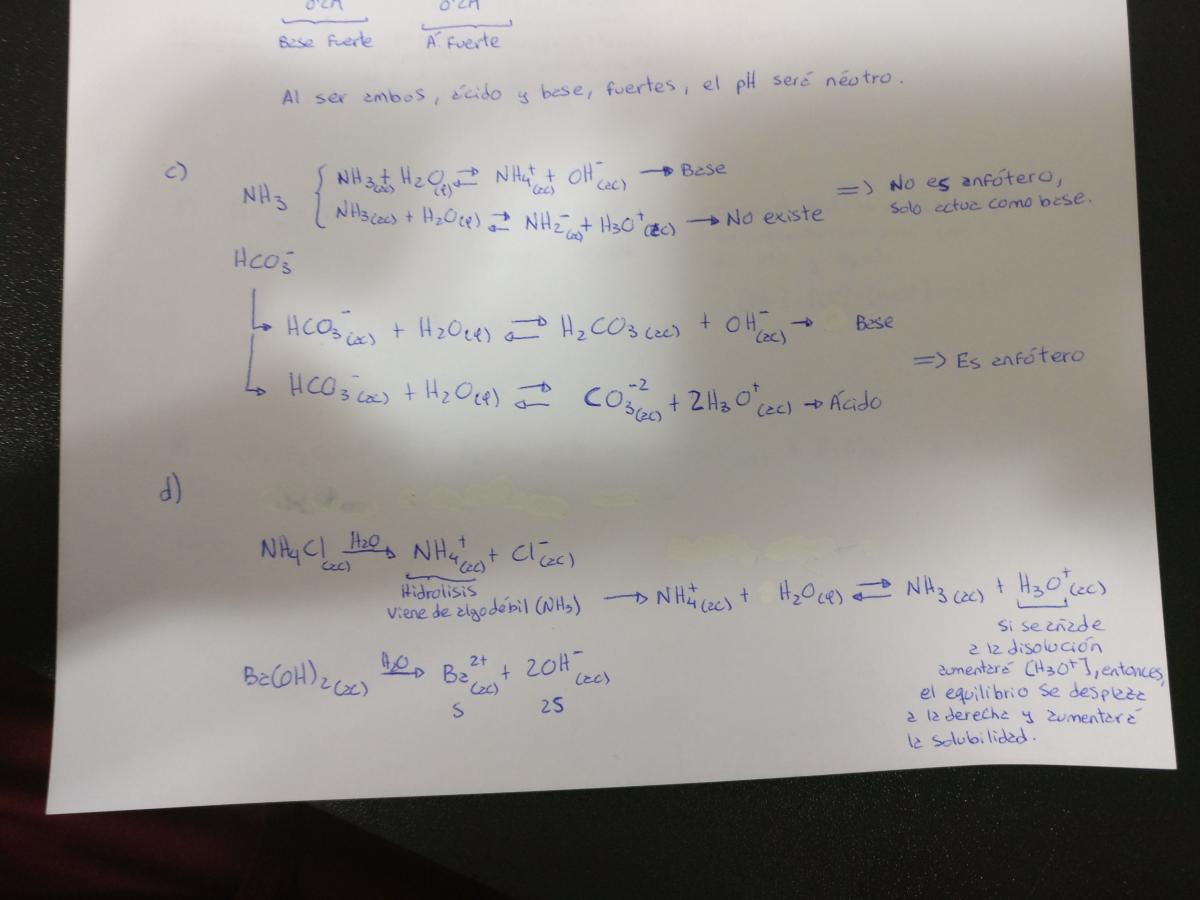 0.2M 0.2M
Base fuerte Á fuerte
Al ser ambos, ácido y base, fuertes, el pH será néutro.
c)
NH3 NH3(ac) + H2O(l) ⇌ NH4+(ac) + OH-(ac) → Base
NH3(ac) + H2O(l) ⇌ NH2-(ac) + H3O+(ac) → No existe
=> No es anfótero,
solo actua como base.
HCO3-
HCO3-(ac) + H2O(l) ⇌ H2CO3(ac) + OH-(ac) → Base
HCO3-(ac) + H2O(l) ⇌ CO3-2(ac) + 2H3O+(ac) → Ácido
=> Es anfótero
d)
NH4Cl(ac) H2O→ NH4+(ac) + Cl-(ac)
Hidrolisis
viene de algo débil (NH3) → NH4+(ac) + H2O(l) ⇌ NH3(ac) + H3O+(ac)
si se añade
a la disolución
aumentará [H3O+], entonces,
el equilibrio se desplaza
a la derecha y aumentará
la solubilidad.
Ba(OH)2(ac) H2O→ Ba2+(ac) + 2OH-(ac)
S 2S